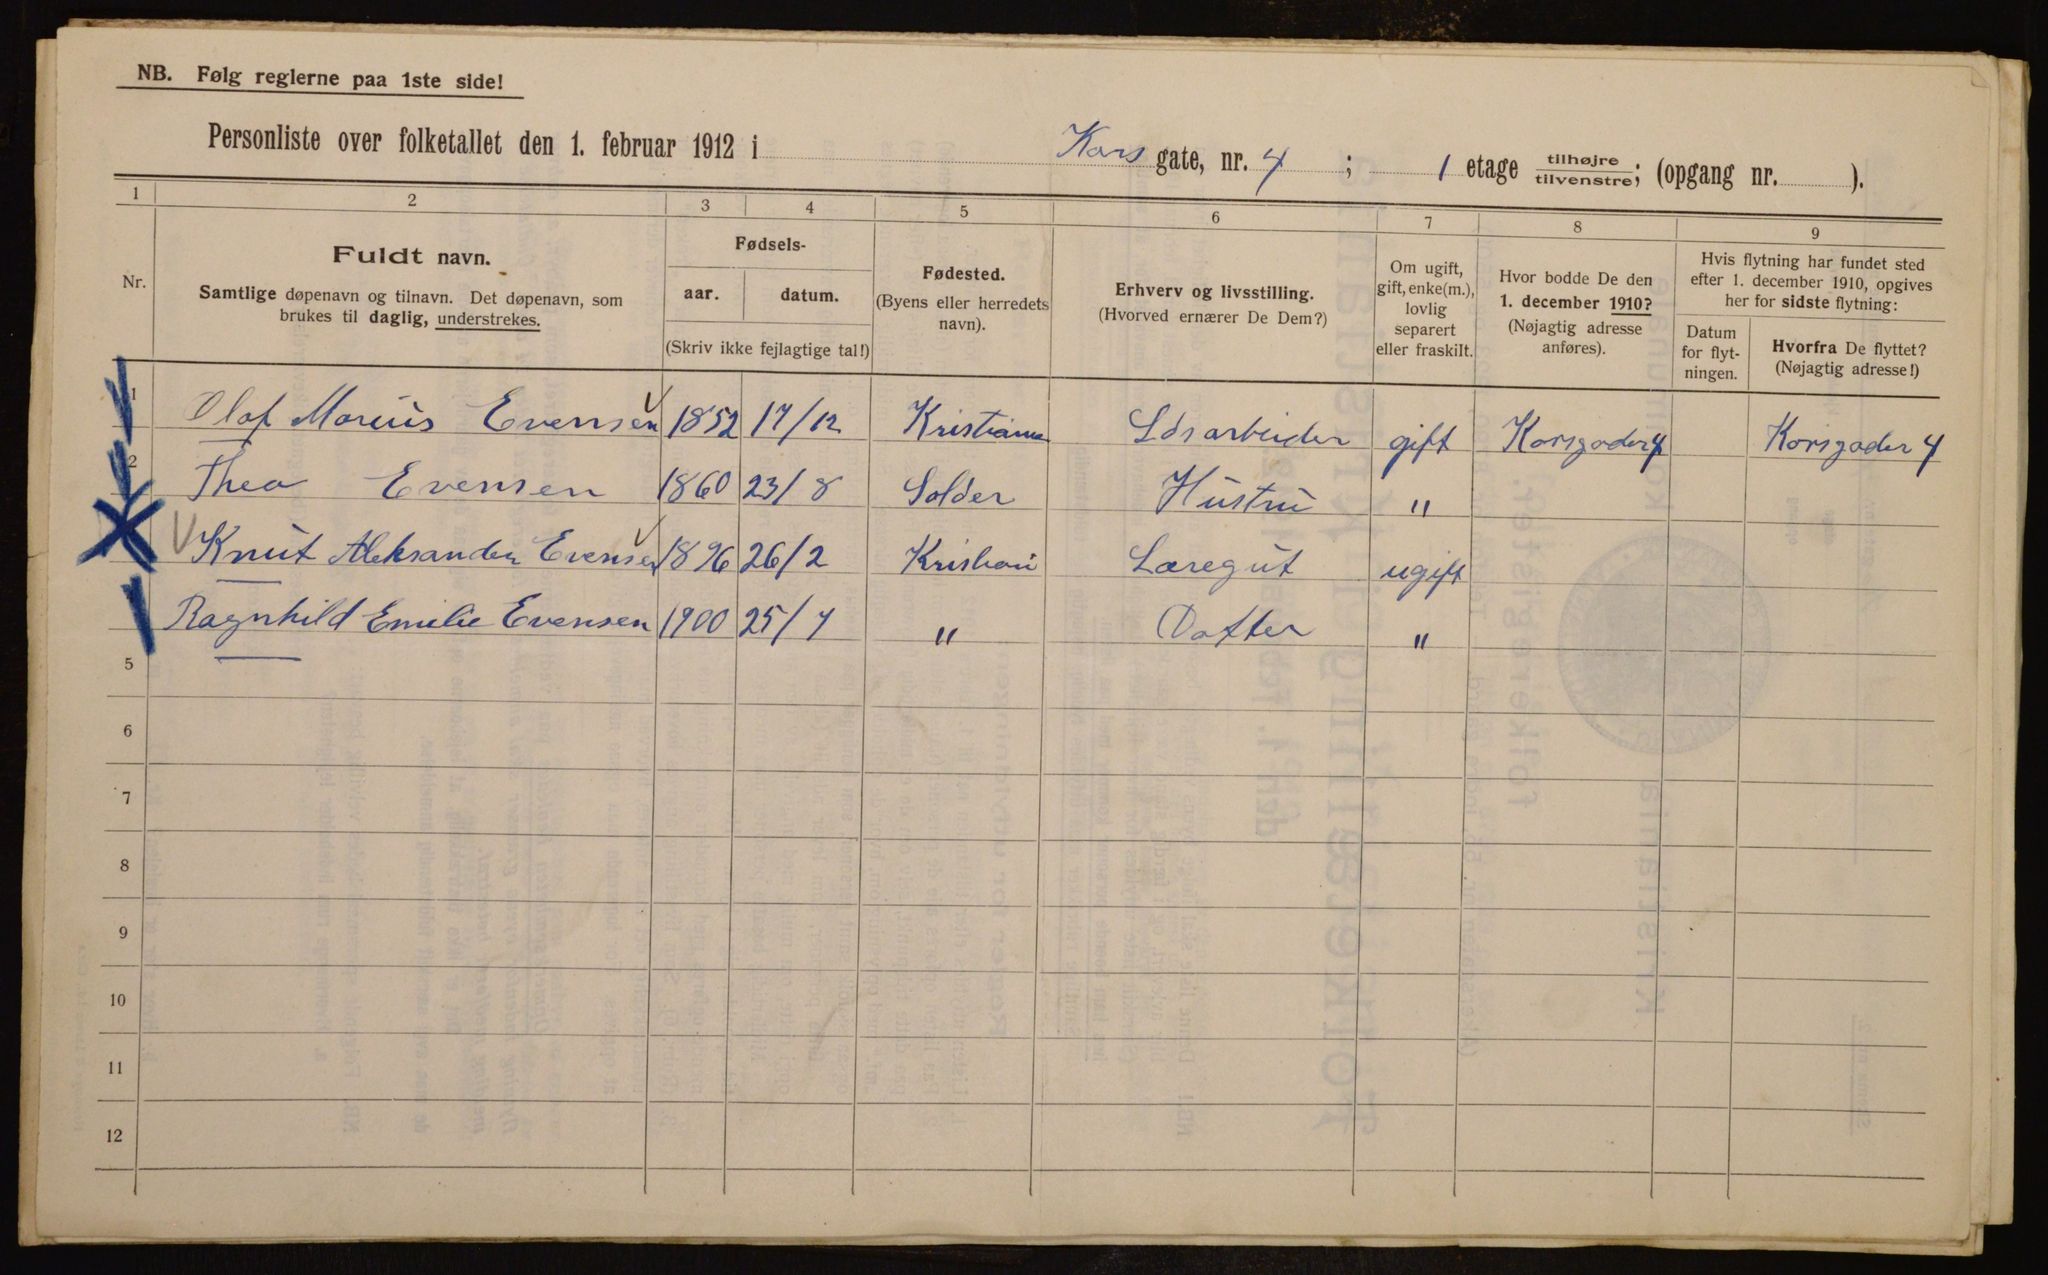 NB. Følg reglerne paa 1ste side!
Personliste over folketallet den 1. februar 1912 i Kors gate, nr. 4 ; 1 etage tilhøjre tilvenstre; (opgang nr. ).
1 2 3 4 5 6 7 8 9
Nr.
Fuldt navn.
Samtlige døpenavn og tilnavn. Det døpenavn, som
brukes til daglig, understrekes.
Fødsels-
aar. datum.
(Skriv ikke fejlagtige tal!)
Fødested.
(Byens eller herredets
navn).
Erhverv og livsstilling.
(Hvorved ernærer De Dem?)
Om ugift,
gift, enke(m.),
lovlig
separert
eller fraskilt.
Hvor bodde De den
1. december 1910?
(Nøjagtig adresse
anføres).
Hvis flytning har fundet sted
efter 1. december 1910, opgives
her for sidste flytning:
Datum
for flyt-
ningen.
Hvorfra De flyttet?
(Nøjagtig adresse!)
1 Olaf Marius Evensen 1852 17/12 Kristiania Løsarbeider gift Korsgaden 4 Korsgaden 4
2 Thea Evensen 1860 23/8 Hustru "
Knut Aleksander Evensen 1896 26/2 Kristiani Læregut ugift
Ragnhild Emilie Evensen 1900 25/7 " Datter "
5
6
7
8
9
10
11
12